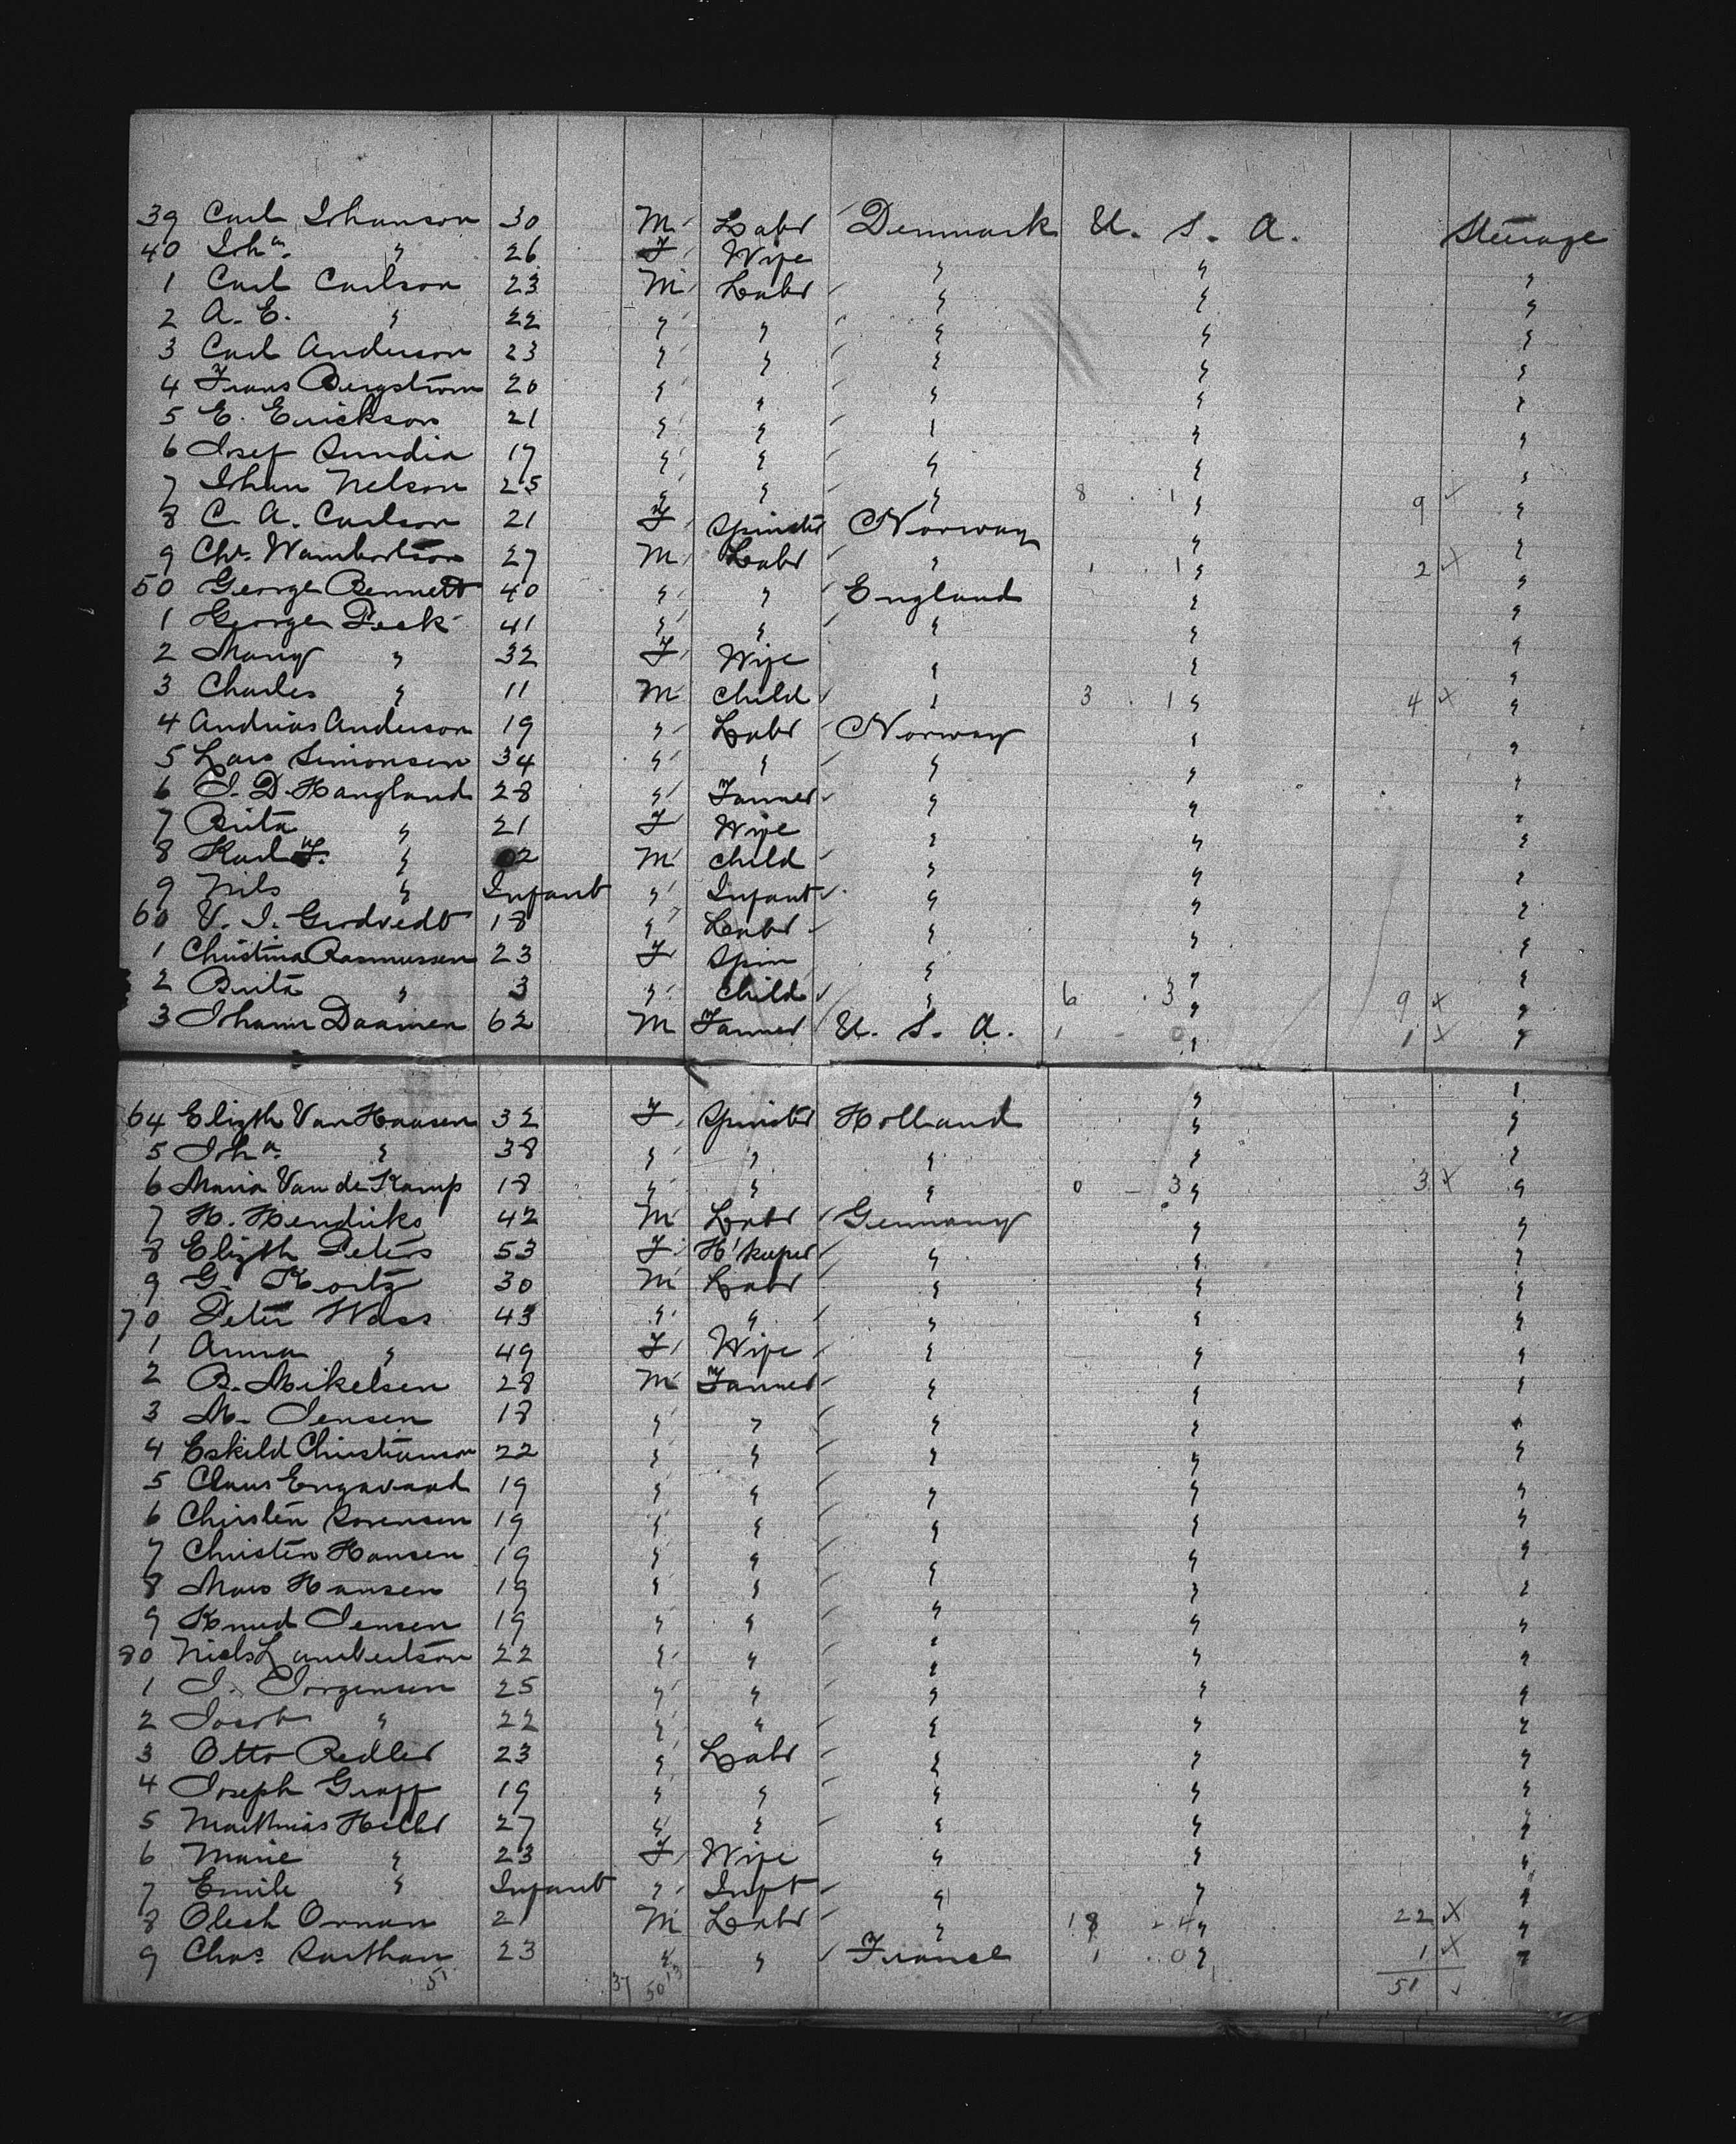 39 Carl Johanson 30 M Labr Denmark U. S. A. Steerage
40 Joha. " 26 F Wife " " "
1 Carl Carlson 23 M Labr " " "
2 A. E. " 22 " " " " "
3 Carl Anderson 23 " " " " "
4 Frans Bergstrom 20 " " " " "
5 E. Erickson 21 " " " " "
6 Josef Sundin 17 " " " " "
7 Johan Nelson 25 " " " 8 . 1 " 9 "
8 C. A. Carlson 21 F Spinstr Norway " "
9 Chr. Wambertson 27 M Labr " 1 . 1 " 2 x "
50 George Bennett 40 " " England " "
1 George Peck 41 " " " " "
2 Mary " 32 F Wife " " "
3 Charles " 11 M Child " 3 . 1 " 4 x "
4 Andrias Anderson 19 " Labr Norway " "
5 Lars Simonsen 34 " " " " "
6 J. D. Haugland 28 " Farmer " " "
7 Brita " 21 F Wife " " "
8 Karl " 2 M Child " " "
9 Nils " Infant " Infant " " "
60 V. J. Girdvedt 18 " Labr " " "
1 Christina Rasmussen 23 F Spin " " "
2 Brita " 3 " Child " 6 . 3 " 9 x "
3 Johann Daamen 62 M Farmer U. S. A. 1 - 0 " 1 x "
64 Elizth Van Haasen 32 F Spinstr Holland " "
5 Joha. " 38 " " " " "
6 Maria Van de Kamp 18 " " " 0 - 3 " 3 x "
7 H. Hendriks 42 M Labr Germany " "
8 Elizth Peters 53 F H'keeper " " "
9 G. Kortz 30 M Labr " " "
70 Peter Wass 43 " " " " "
1 Anna " 49 F Wife " " "
2 B. Mikelsen 28 M Farmer " " "
3 M. Jensen 18 " " " " "
4 Eskild Christianson 22 " " " " "
5 Claus Engavaad 19 " " " " "
6 Chirsten Sorensen 19 " " " " "
7 Christen Hansen 19 " " " " "
8 Mars Hansen 19 " " " " "
9 Knud Jensen 19 " " " " "
80 Niels Lambertson 22 " " " " "
1 J. Jorgensen 25 " " " " "
2 Jacob " 22 " " " " "
3 Otto Redler 23 " Labr " " "
4 Joseph Graff 19 " " " " "
5 Matthias Heller 27 " " " " "
6 Marie " 23 F Wife " " "
7 Emile " Infant " Inft " " "
8 Olesh Ornan 21 M Labr " 18 - 4 " 22 x "
9 Chas. Sarthan 23 " " France 1 . 0 " 1 x "
51 37 50 13 51